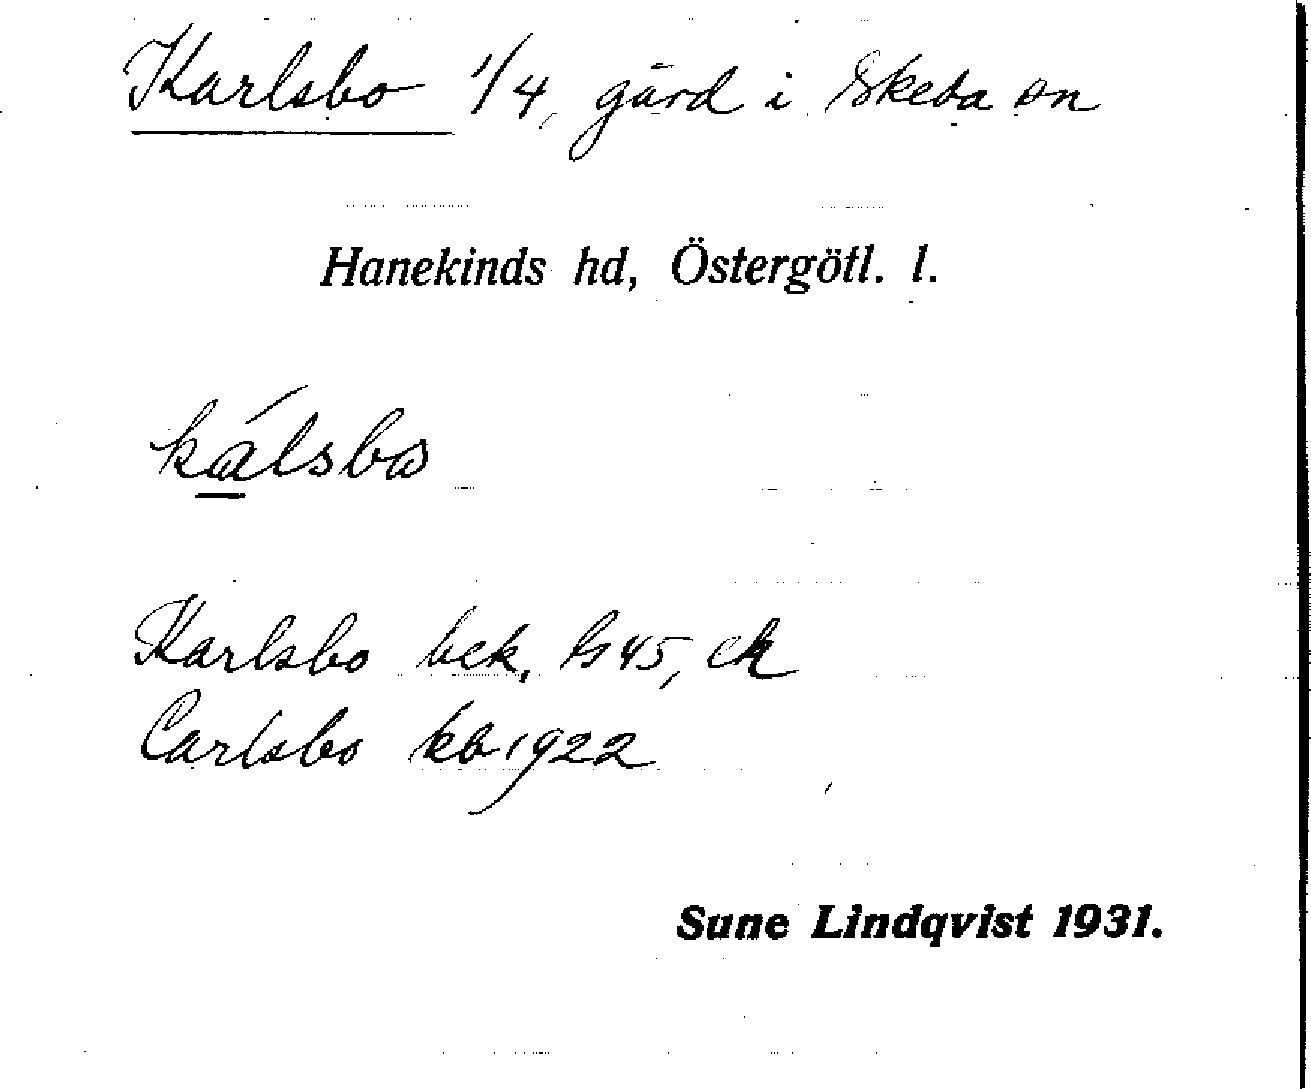 Karlsbo 1/4, gård i Skeda sn
Hanekinds hd, Östergötl. l.
kálsbo
Karlsbo bek, hs 45, ek
Carlsbo kb 1922
Sune Lindqvist 1931.